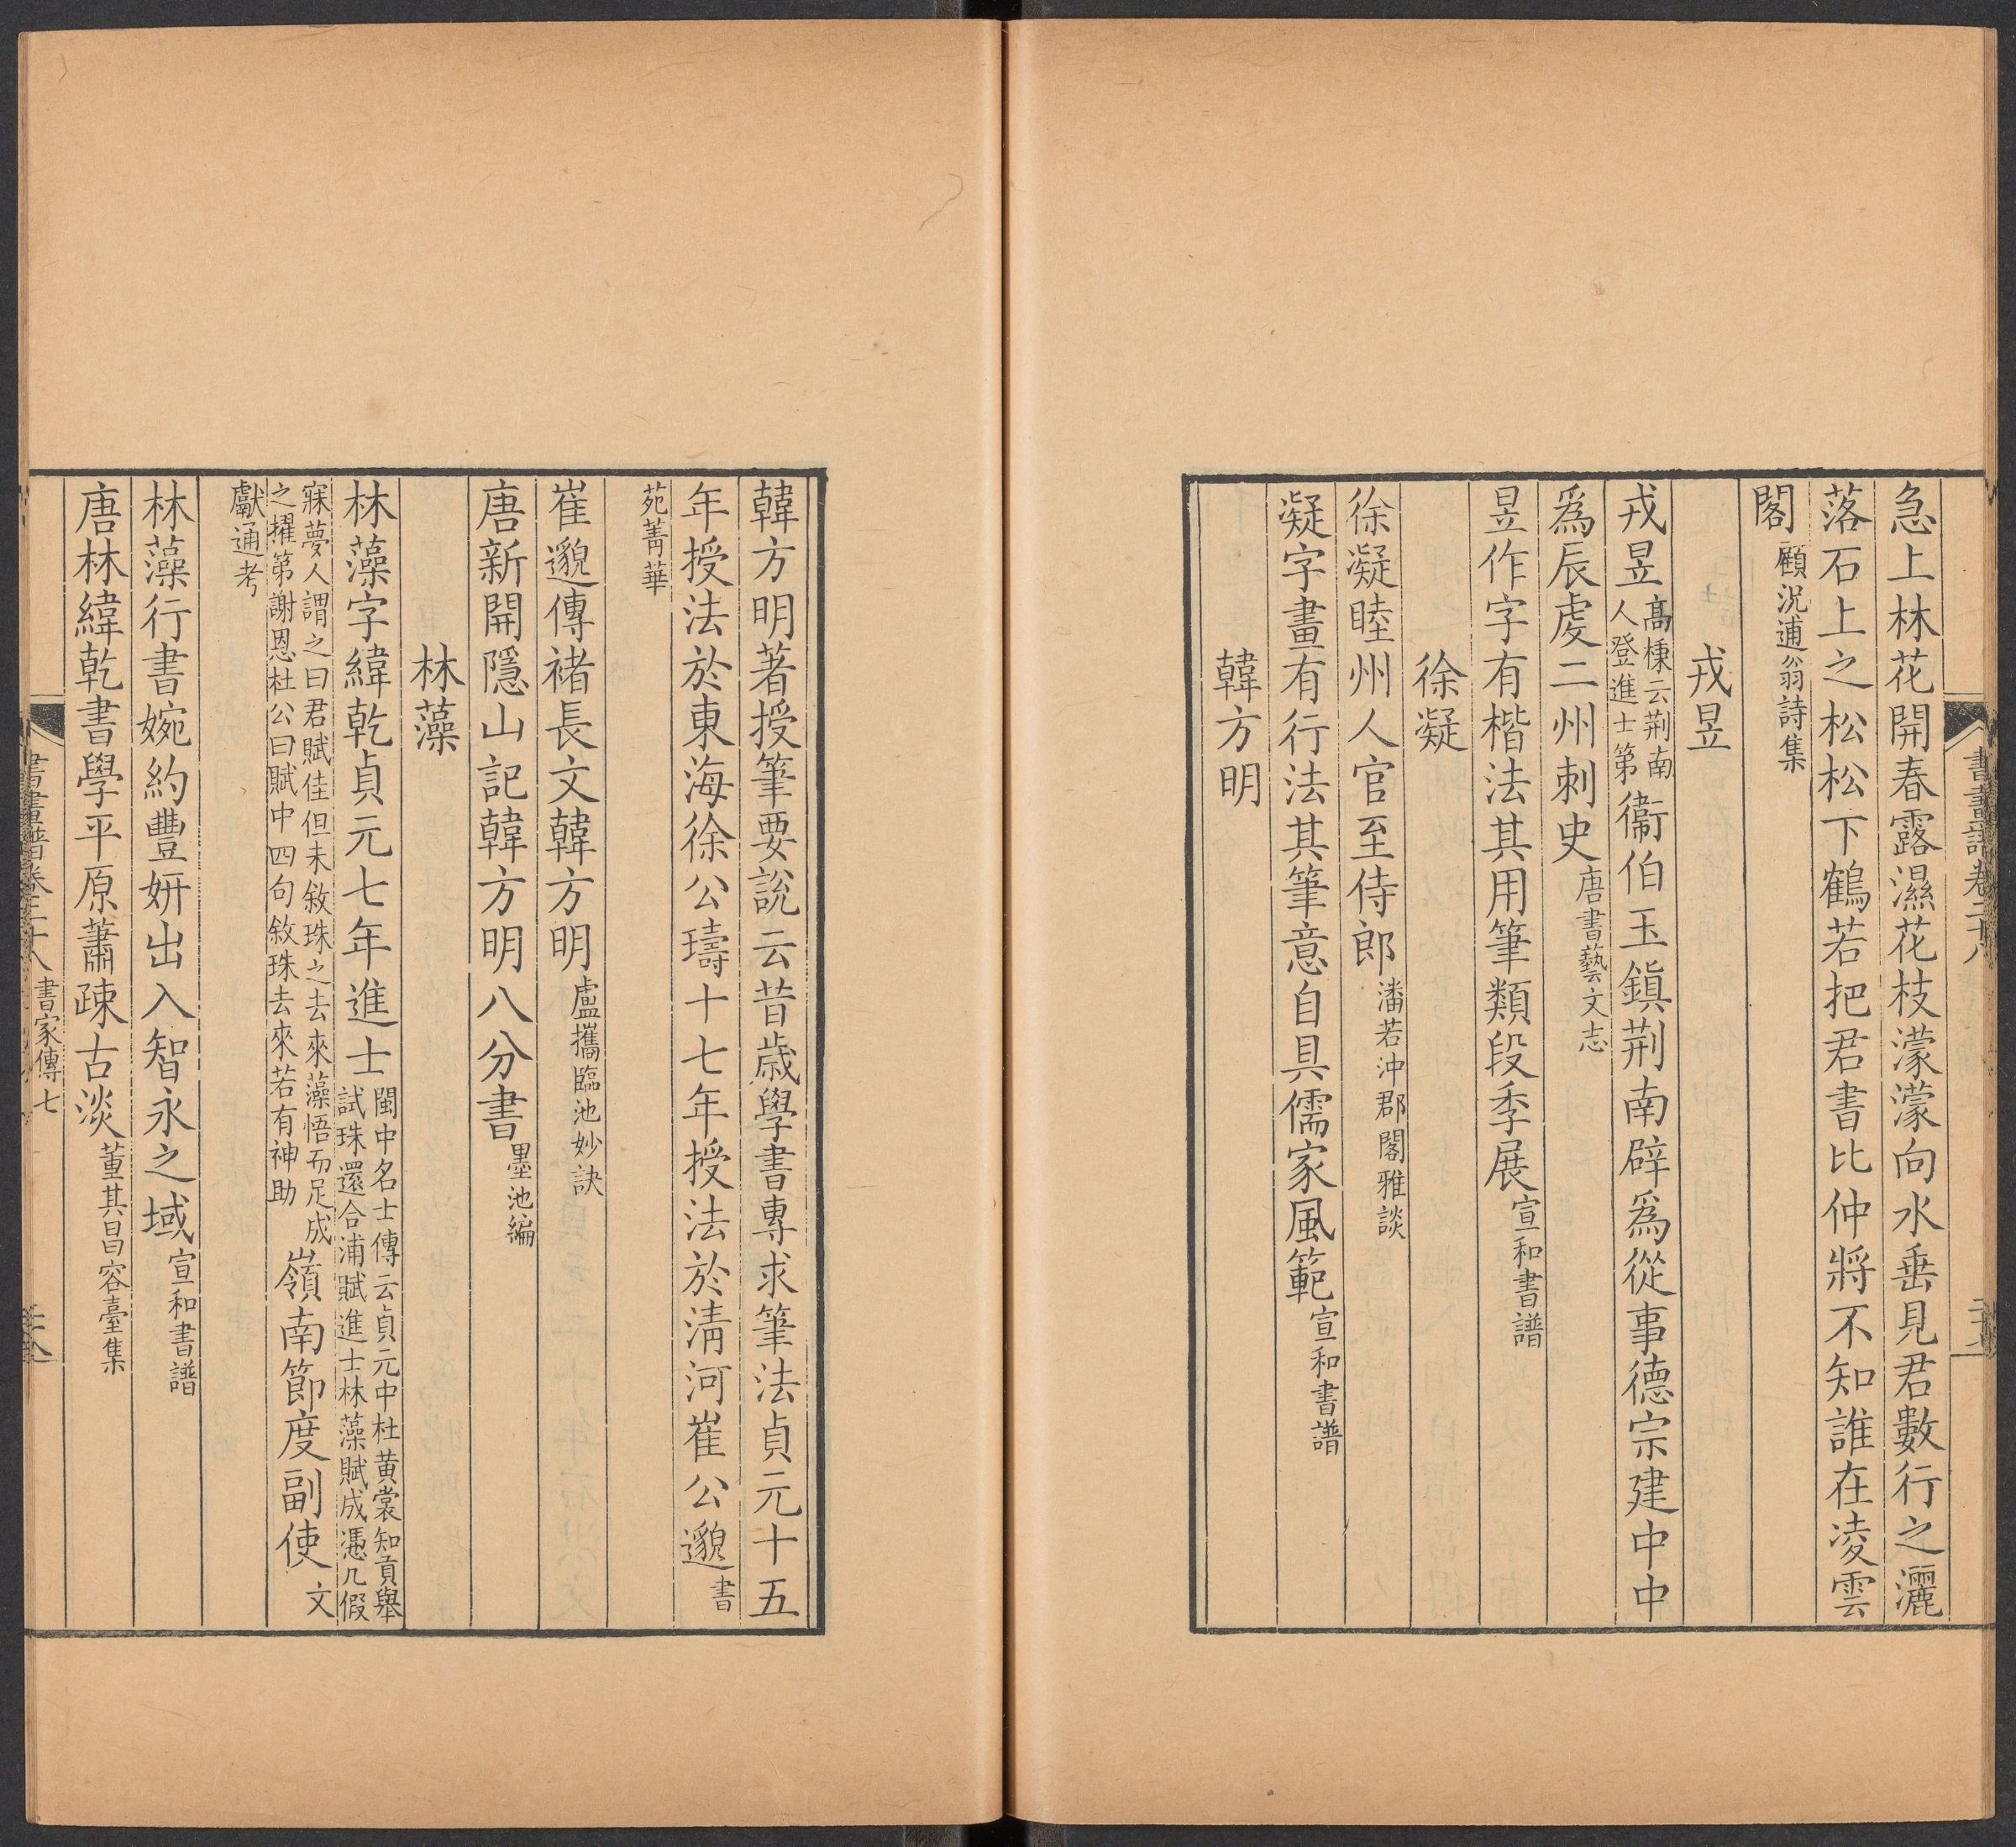 急上林花開春露濕花枝濛濛向水垂見君數行之灑
落石上之松松下鶴若把君書比仲將不知誰在凌雲
閣顧況逋翁詩集
戎昱
戎昱高棅云荆南人登進士第衞伯玉鎮荆南辟爲從事德宗建中中
爲辰虔二州刺史唐書藝文志
昱作字有楷法其用筆類段季展宣和書譜
徐凝
徐凝睦州人官至侍郎潘若沖郡閣雅談
凝字畫有行法其筆意自具儒家風範宣和書譜
韓方明
書畫譜卷二十八
韓方明著授筆要說云昔歲學書專求筆法貞元十五
年授法於東海徐公璹十七年授法於淸河崔公邈書
苑菁華
崔邈傳褚長文韓方明盧攜臨池妙訣
唐新開隱山記韓方明八分書墨池編
林藻
林藻字緯乾貞元七年進士閩中名士傳云貞元中杜黃裳知貢舉試珠還合浦賦進士林藻賦成憑几假
寐夢人謂之曰君賦佳但未敘珠之去來藻悟而足成之擢第謝恩杜公曰賦中四句敘珠去來若有神助嶺南節度副使文
獻通考
林藻行書婉約豐妍出入智永之域宣和書譜
唐林緯乾書學平原蕭疎古淡董其昌容臺集
書畫譜卷二十八 書家傳七